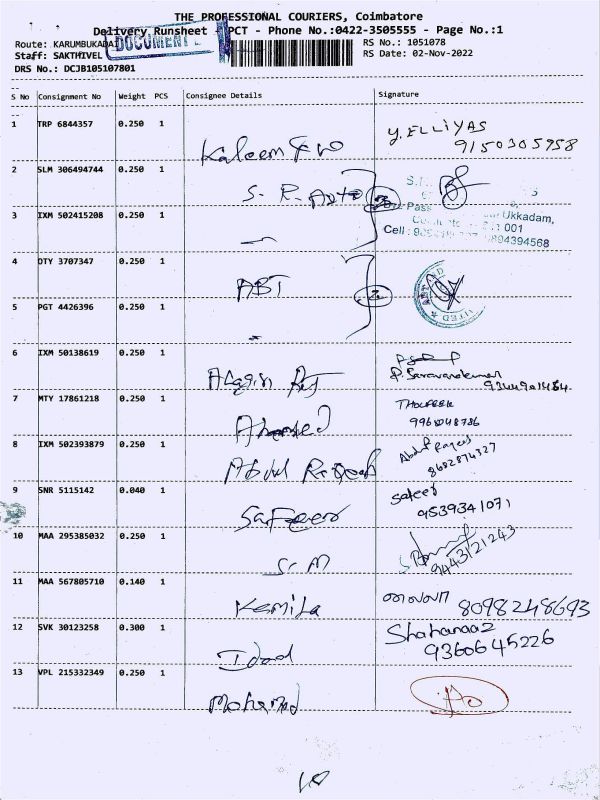 THE PROFESSIONAL COURIERS, Coimbatore
Delivery Runsheet - PCT - Phone No.:0422-3505555 - Page No.:1
DOCUMENT
Route: KARUMBUKADAI
RS No.: 1051078
Staff: SAKTHIVEL
RS Date: 02-Nov-2022
DRS No.: DCJB105107801
S No Consignment No Weight PCS Consignee Details Signature
1 TRP 6844357 0.250 1 Kaleem Y. ELLIYAS
9150305958
2 SLM 306494744 0.250 1 S. R. Auto 2
Ukkadam,
001
3 IXM 502415208 0.250 1 Cell : 9894394568
4 DTY 3707347 0.250 1 ABT 2
5 PGT 4426396 0.250 1
6 IXM 50138619 0.250 1 P. Saravanakumar
7 MTY 17861218 0.250 1 Ahamed THOUFEEK
8 IXM 502393879 0.250 1 Abdul Raqeeb
8682874327
9 SNR 5115142 0.040 1 Safeer safeer
9539341071
10 MAA 295385032 0.250 1 S. M 9443121243
11 MAA 567805710 0.140 1 Kamila 8098248693
12 SVK 30123258 0.300 1 Shahanaaz
9360645226
13 VPL 215332349 0.250 1 Mohamed